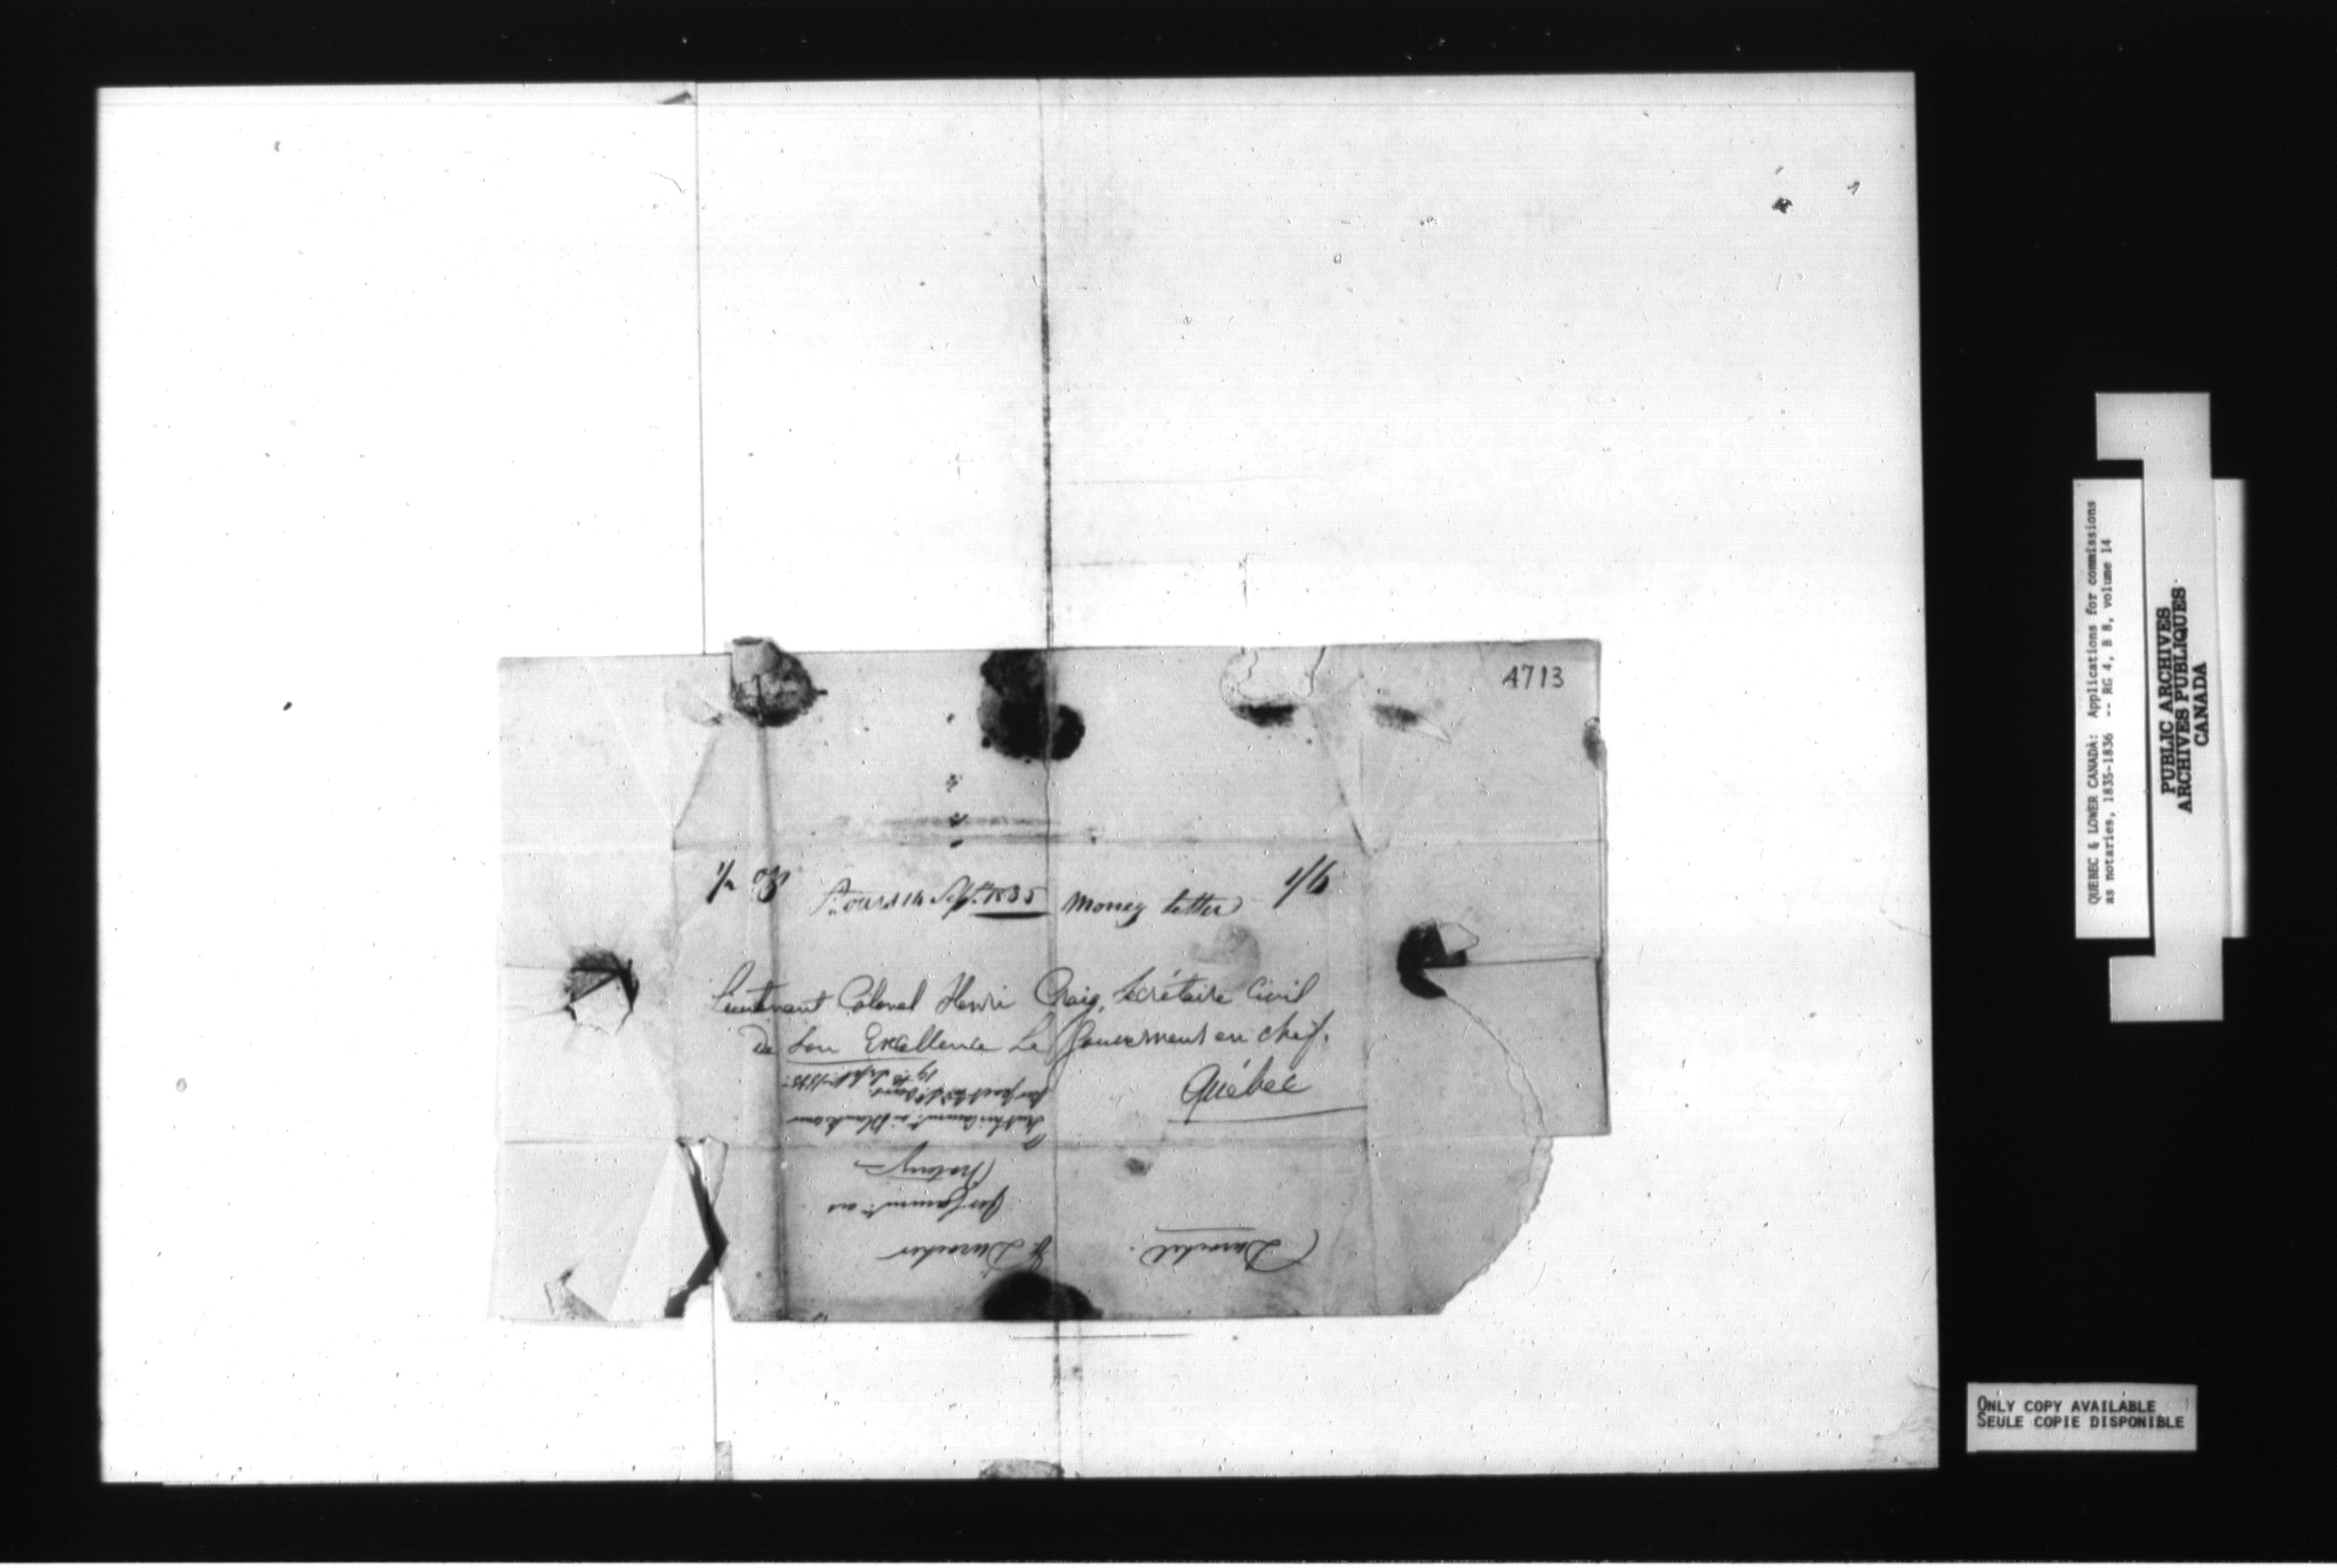 4713
St. ours 14 Sept. 1835 Money letter 1/6
Lieutenant Colonel Henri Craig, Secrétaire Civil
de Son Excellence Le Gouverneur en chef.
Québec
Durocher
J. Durocher
for Commn. as
Notary
19th Sept. 1835
QUEBEC & LOWER CANADA: Applications for commissions
as notaries, 1835-1836 -- RG 4, B 8, volume 14
PUBLIC ARCHIVES
ARCHIVES PUBLIQUES
CANADA
ONLY COPY AVAILABLE
SEULE COPIE DISPONIBLE